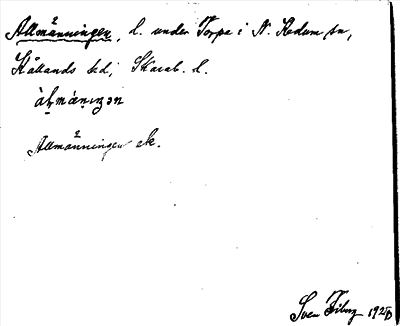 Allmänningen, l. under Torpa i N. Kedum sn,
Kållands hd, Skarab. l.
àl̥mániŋən
Allmänningen ek.
Sven 192